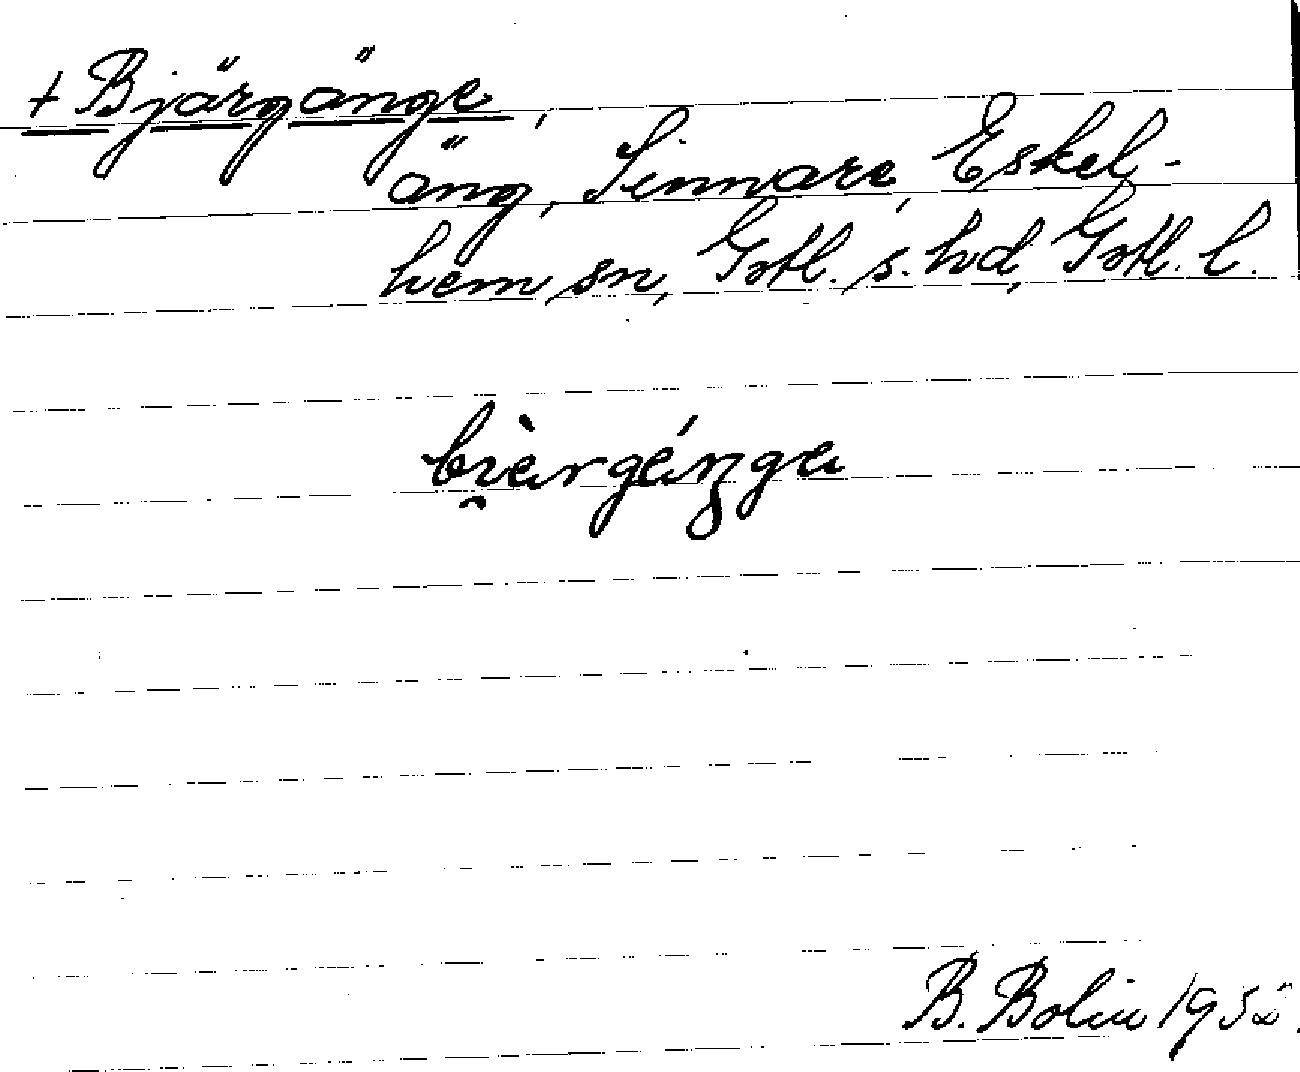 + Bjärgänge,
äng, Sinnare, Eskel-
hem sn, Gotl. s. hd, Gotl. l.
B. Bolin 1952.